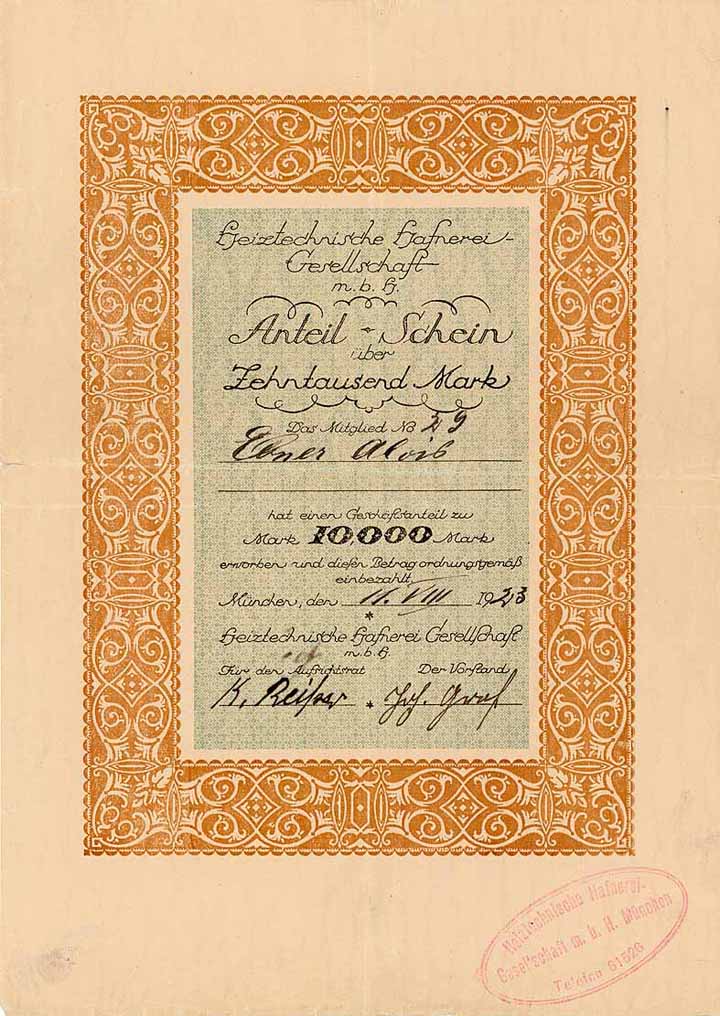 Heiztechnische Hafnerei-
Gesellschaft
m. b. H.
Anteil - Schein
über
Zehntausend Mark
Das Mitglied No 29
Ebner Alois
hat einen Geschäftsanteil zu
Mark 10000 Mark
erworben und diesen Betrag ordnungsgemäß
einbezahlt.
München, den 11. VIII 1923
*
Heiztechnische Hafnerei Gesellschaft
m. b. H.
Für den Aufsichtsrat Der Vorstand
K. * Joh. Graf
Heiztechnische Hafnerei-
Gesellschaft m. b. H. München
Telefon 61526